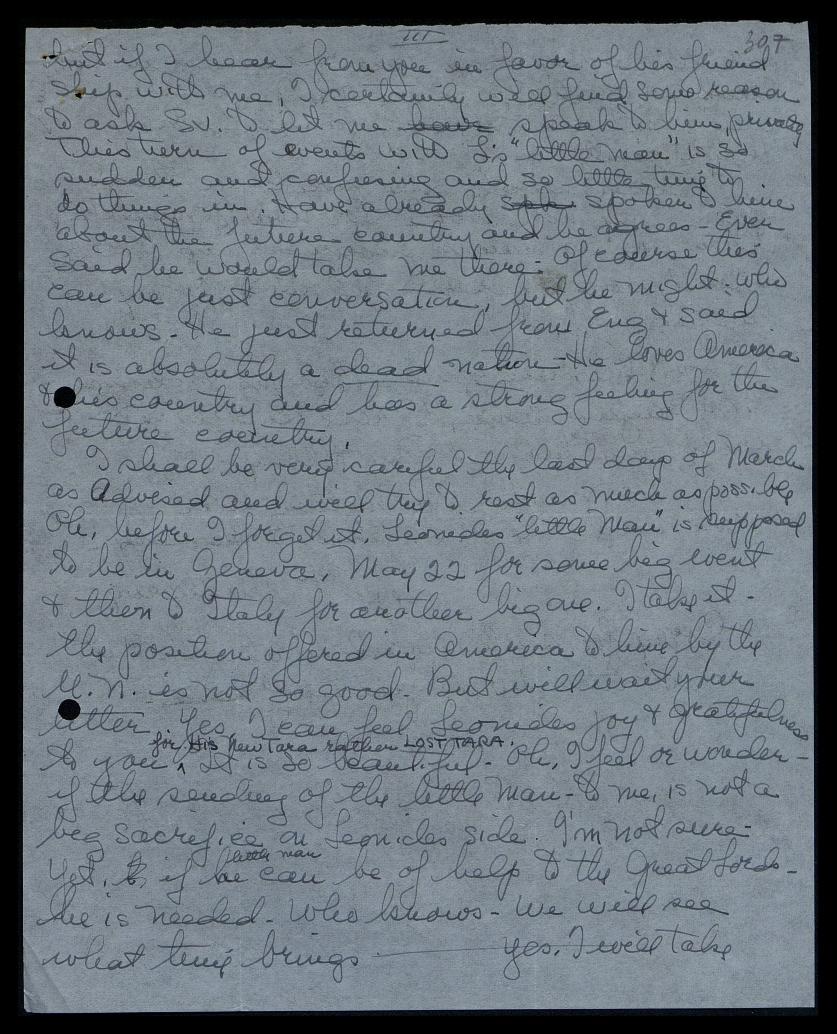 III
307
but if I hear from you in favor of his friend
ship with me, I certainly will find some reason
to ask Sv. to let me have speak to him, privately
This turn of events with L's "little man" is so
sudden and confusing and so little time to
do things in. Have already spoken to him
about the future country and he agrees - Even
said he would take me there. Of course this
can be just conversation, but he might - who
knows - He just returned from Eng & said
it is absolutely a dead nation - He loves America
& his country and has a strong feeling for the
future country.
I shall be very careful the last days of March
as Advised and will try to rest as much as possible
Oh, before I forget it. Leonides "little Man" is supposed
to be in Geneva, May 22 for some big event
& then to Italy for another big one. I take it -
the position offered in America to him by the
U.N. is not so good. But will wait your
letter Yes, I can feel Leonides joy & gratefulness
for His New Tara rather LOST TARA.
to you ^ It is so beautiful. Oh, I feel or wonder -
if the sending of the little man - to me, is not a
big sacrifice on Leonides side. I'm not sure -
little man
Yet, if he can be of help to the Great Lords -
he is needed - Who knows - We will see
what time brings — Yes, I will take